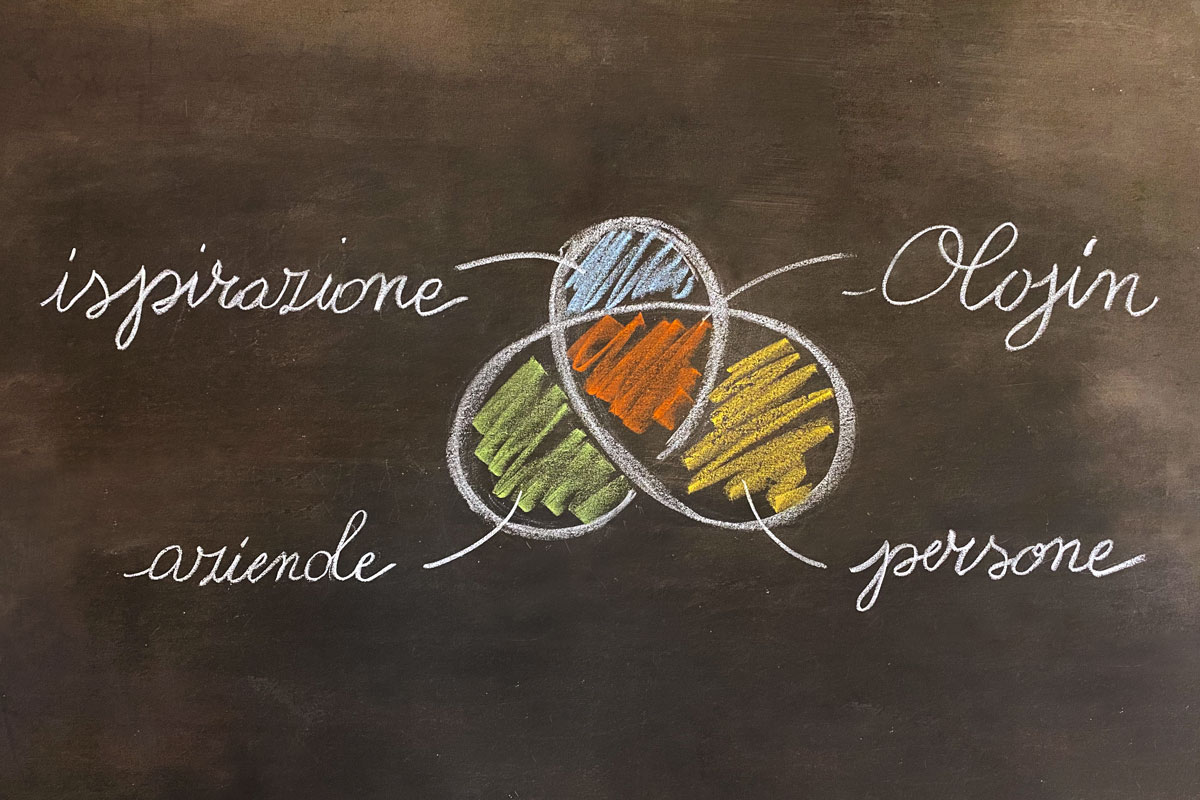 ispirazione
Olojin
aziende
persone